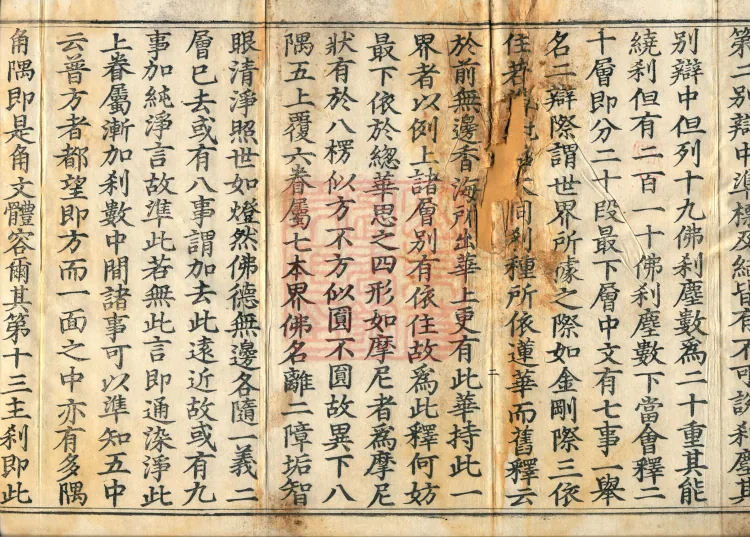 第二別辯中準標及結皆有不可說刹塵其
別辯中但列十九佛刹塵數爲二十重其能
繞刹但有二百一十佛刹塵數下當會釋二
十層即分二十段最下層中文有七事一舉
名二辯際謂世界所據之際如金剛際三依
住若 間刹種所依蓮華而舊釋云
於前無邊香海所出華上更有此華持此一
界者以例上諸層別有依住故爲此釋何妨
最下依於總華思之四形如摩尼者爲摩尼
狀有於八楞似方不方似圓不圓故異下八
隅五上覆六眷屬七本界佛名離二障垢智
眼清淨照世如燈然佛德無邊各隨一義二
層巳去或有八事謂加去此遠近故或有九
事加純淨言故準此若無此言即通染淨此
上眷屬漸加刹數中間諸事可以準知五中
云普方者都望即方而一面之中亦有多隅
角隅即是角文體容爾其第十三主刹即此
二